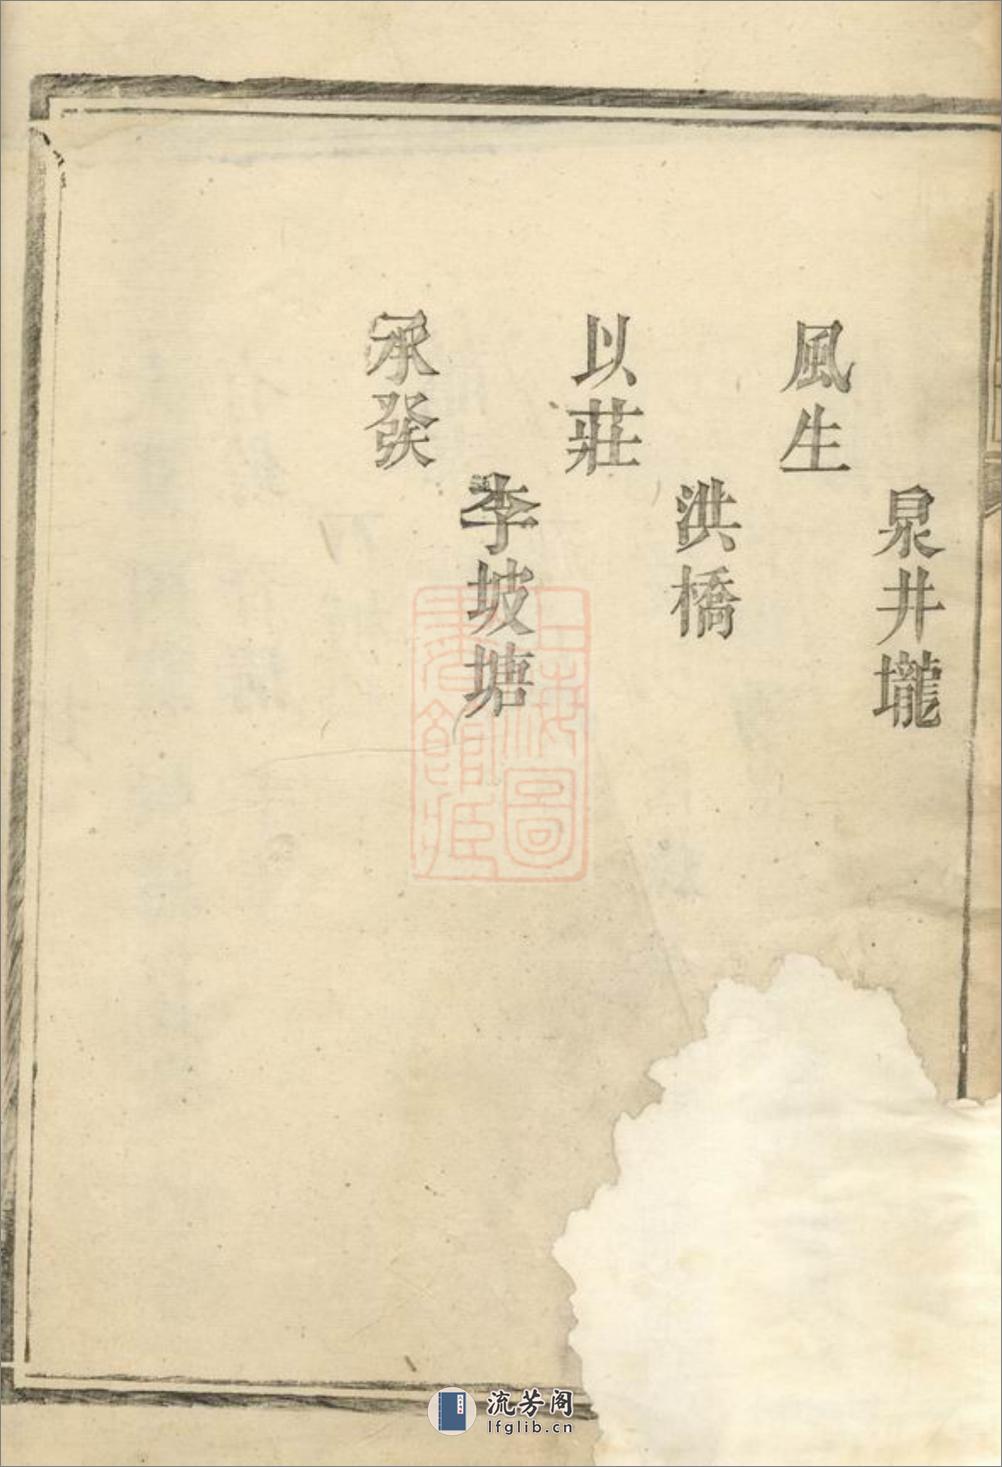 泉井壠
風生
洪橋
以莊
李坡塘
承發
上海圖
書館藏
流芳阁
lfglib.cn